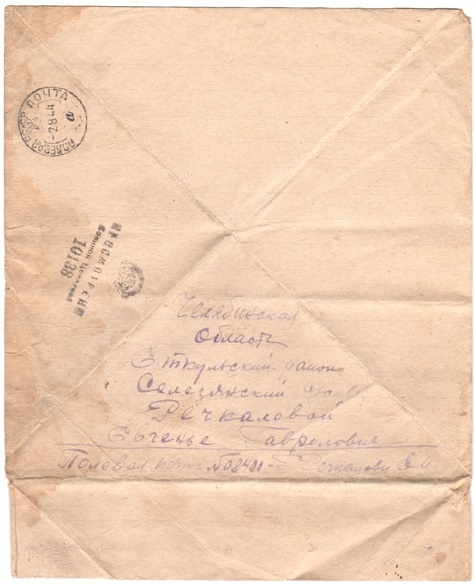 ПОЛЕВАЯ ПОЧТА
-2 8 44
а
ПРОСМОТРЕНО
Военной Цензурой
10138
Челябинская
Область
Еткульский район
Селезянский с/с
Речкаловой
Евгенье Гавриловне
Полевая почта №08400-